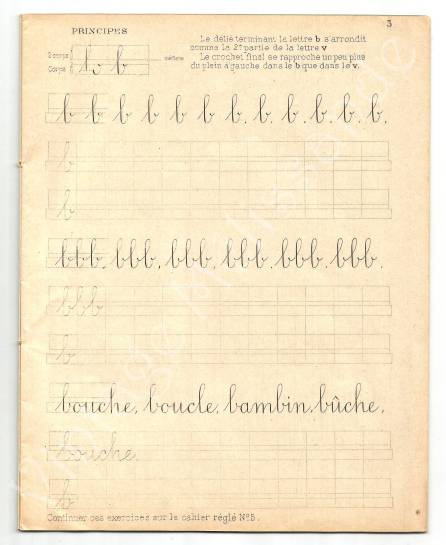 3
PRINCIPES
Le délié terminant la lettre b s'arrondit
comme la 2e partie de la lettre v
Le crochet final se rapproche un peu plus
du plein à gauche dans le b que dans le v.
Corps
b b
b b b b b b b. b. b. b. b. b.
b
b
bbb, bbb, bbb, bbb, bbb, bbb.
bbb
b
bouche, boucle, bambin, bûche,
bouche.
b
Continuer ces exercices sur le cahier réglé No 5.